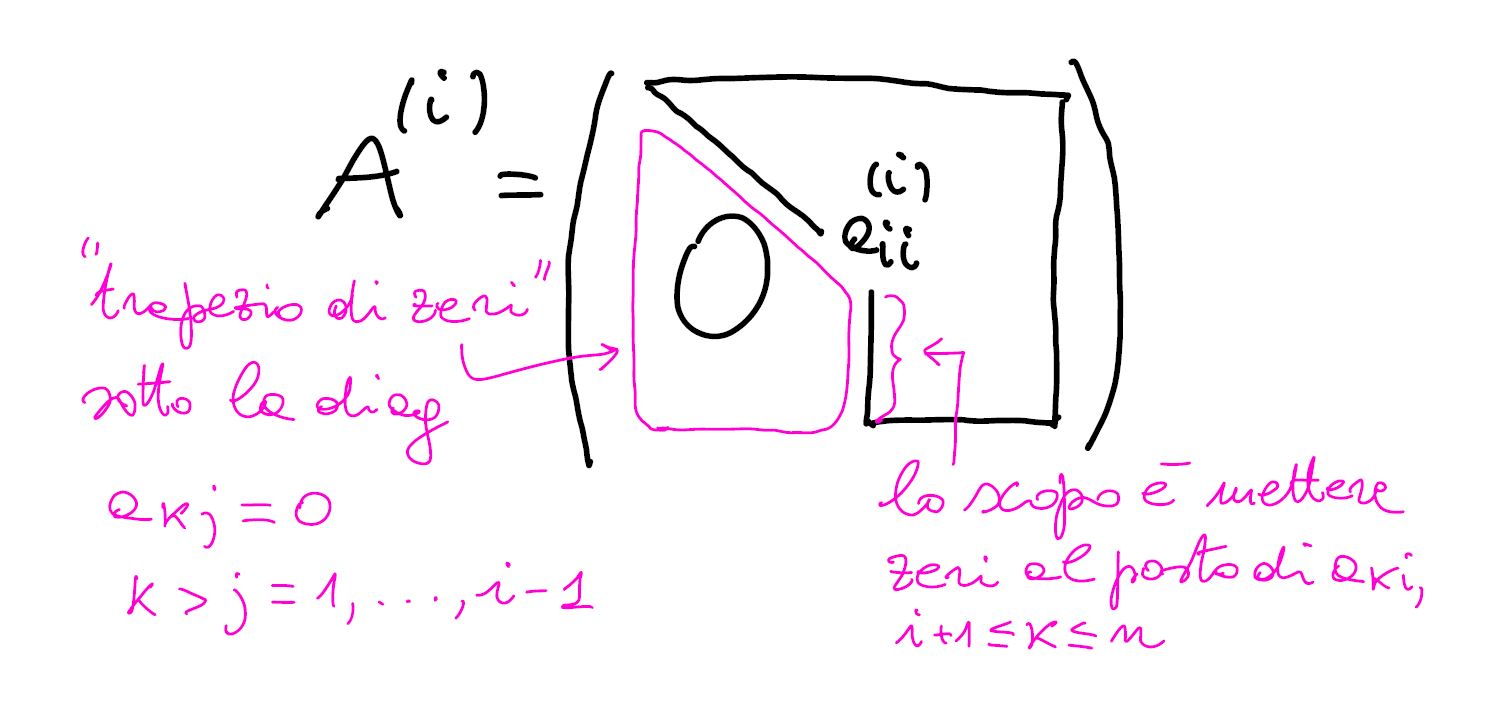 A^(i) = ( 0 a_ii^(i) )
"trapezio di zeri"
sotto la diag
a_kj = 0
k > j = 1, ..., i-1
lo scopo è mettere
zeri al posto di a_ki,
i+1 ≤ k ≤ n